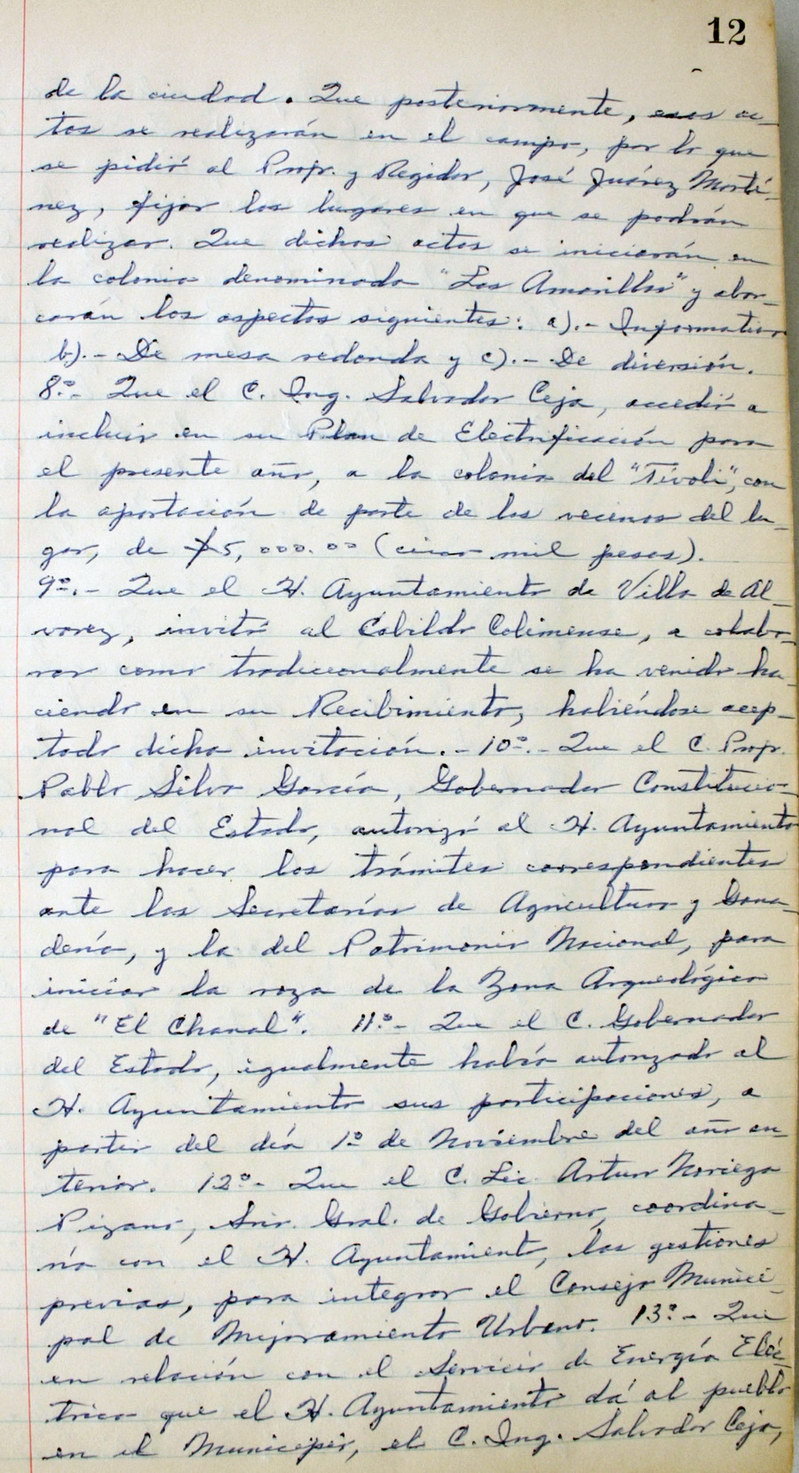 12
de la ciudad. Que posteriormente, esos ac-
tos se realizarán en el campo, por lo que
se pidió al Profr. y Regidor, José Juárez Martí-
nez, fijar los lugares en que se podrán
realizar. Que dichos actos se iniciarán en
la colonia denominada "Los Amarillos" y abar-
carán los aspectos siguientes: a).- Informativo
b).- De mesa redonda y c).- De diversión.
8º.- Que el C. Ing. Salvador Ceja, accedió a
incluir en su Plan de Electrificación para
el presente año, a la colonia del "Tívoli", con
la aportación de parte de los vecinos del lu-
gar, de $5,000.00 (cinco mil pesos).
9º.- Que el H. Ayuntamiento de Villa de Al-
varez, invitó al Cabildo Colimense, a colabo-
rar como tradicionalmente se ha venido ha-
ciendo en su Recibimiento, habiéndose acep-
tado dicha invitación.- 10º.- Que el C. Profr.
Pablo Silva García, Gobernador Constitucio-
nal del Estado, autorizó al H. Ayuntamiento
para hacer los trámites correspondientes
ante las Secretarías de Agricultura y Gana-
dería, y la del Patrimonio Nacional, para
iniciar la roza de la Zona Arqueológica
de "El Chanal". 11º.- Que el C. Gobernador
del Estado, igualmente había autorizado al
H. Ayuntamiento sus participaciones, a
partir del día 1º de Noviembre del año an-
terior. 12º.- Que el C. Lic. Arturo Noriega
Pizano, Srio. Gral. de Gobierno, coordina-
ría con el H. Ayuntamiento, las gestiones
previas, para integrar el Consejo Munici-
pal de Mejoramiento Urbano. 13º.- Que
en relación con el Servicio de Energía Eléc-
trica que el H. Ayuntamiento dá al pueblo
en el Municipio, el C. Ing. Salvador Ceja,